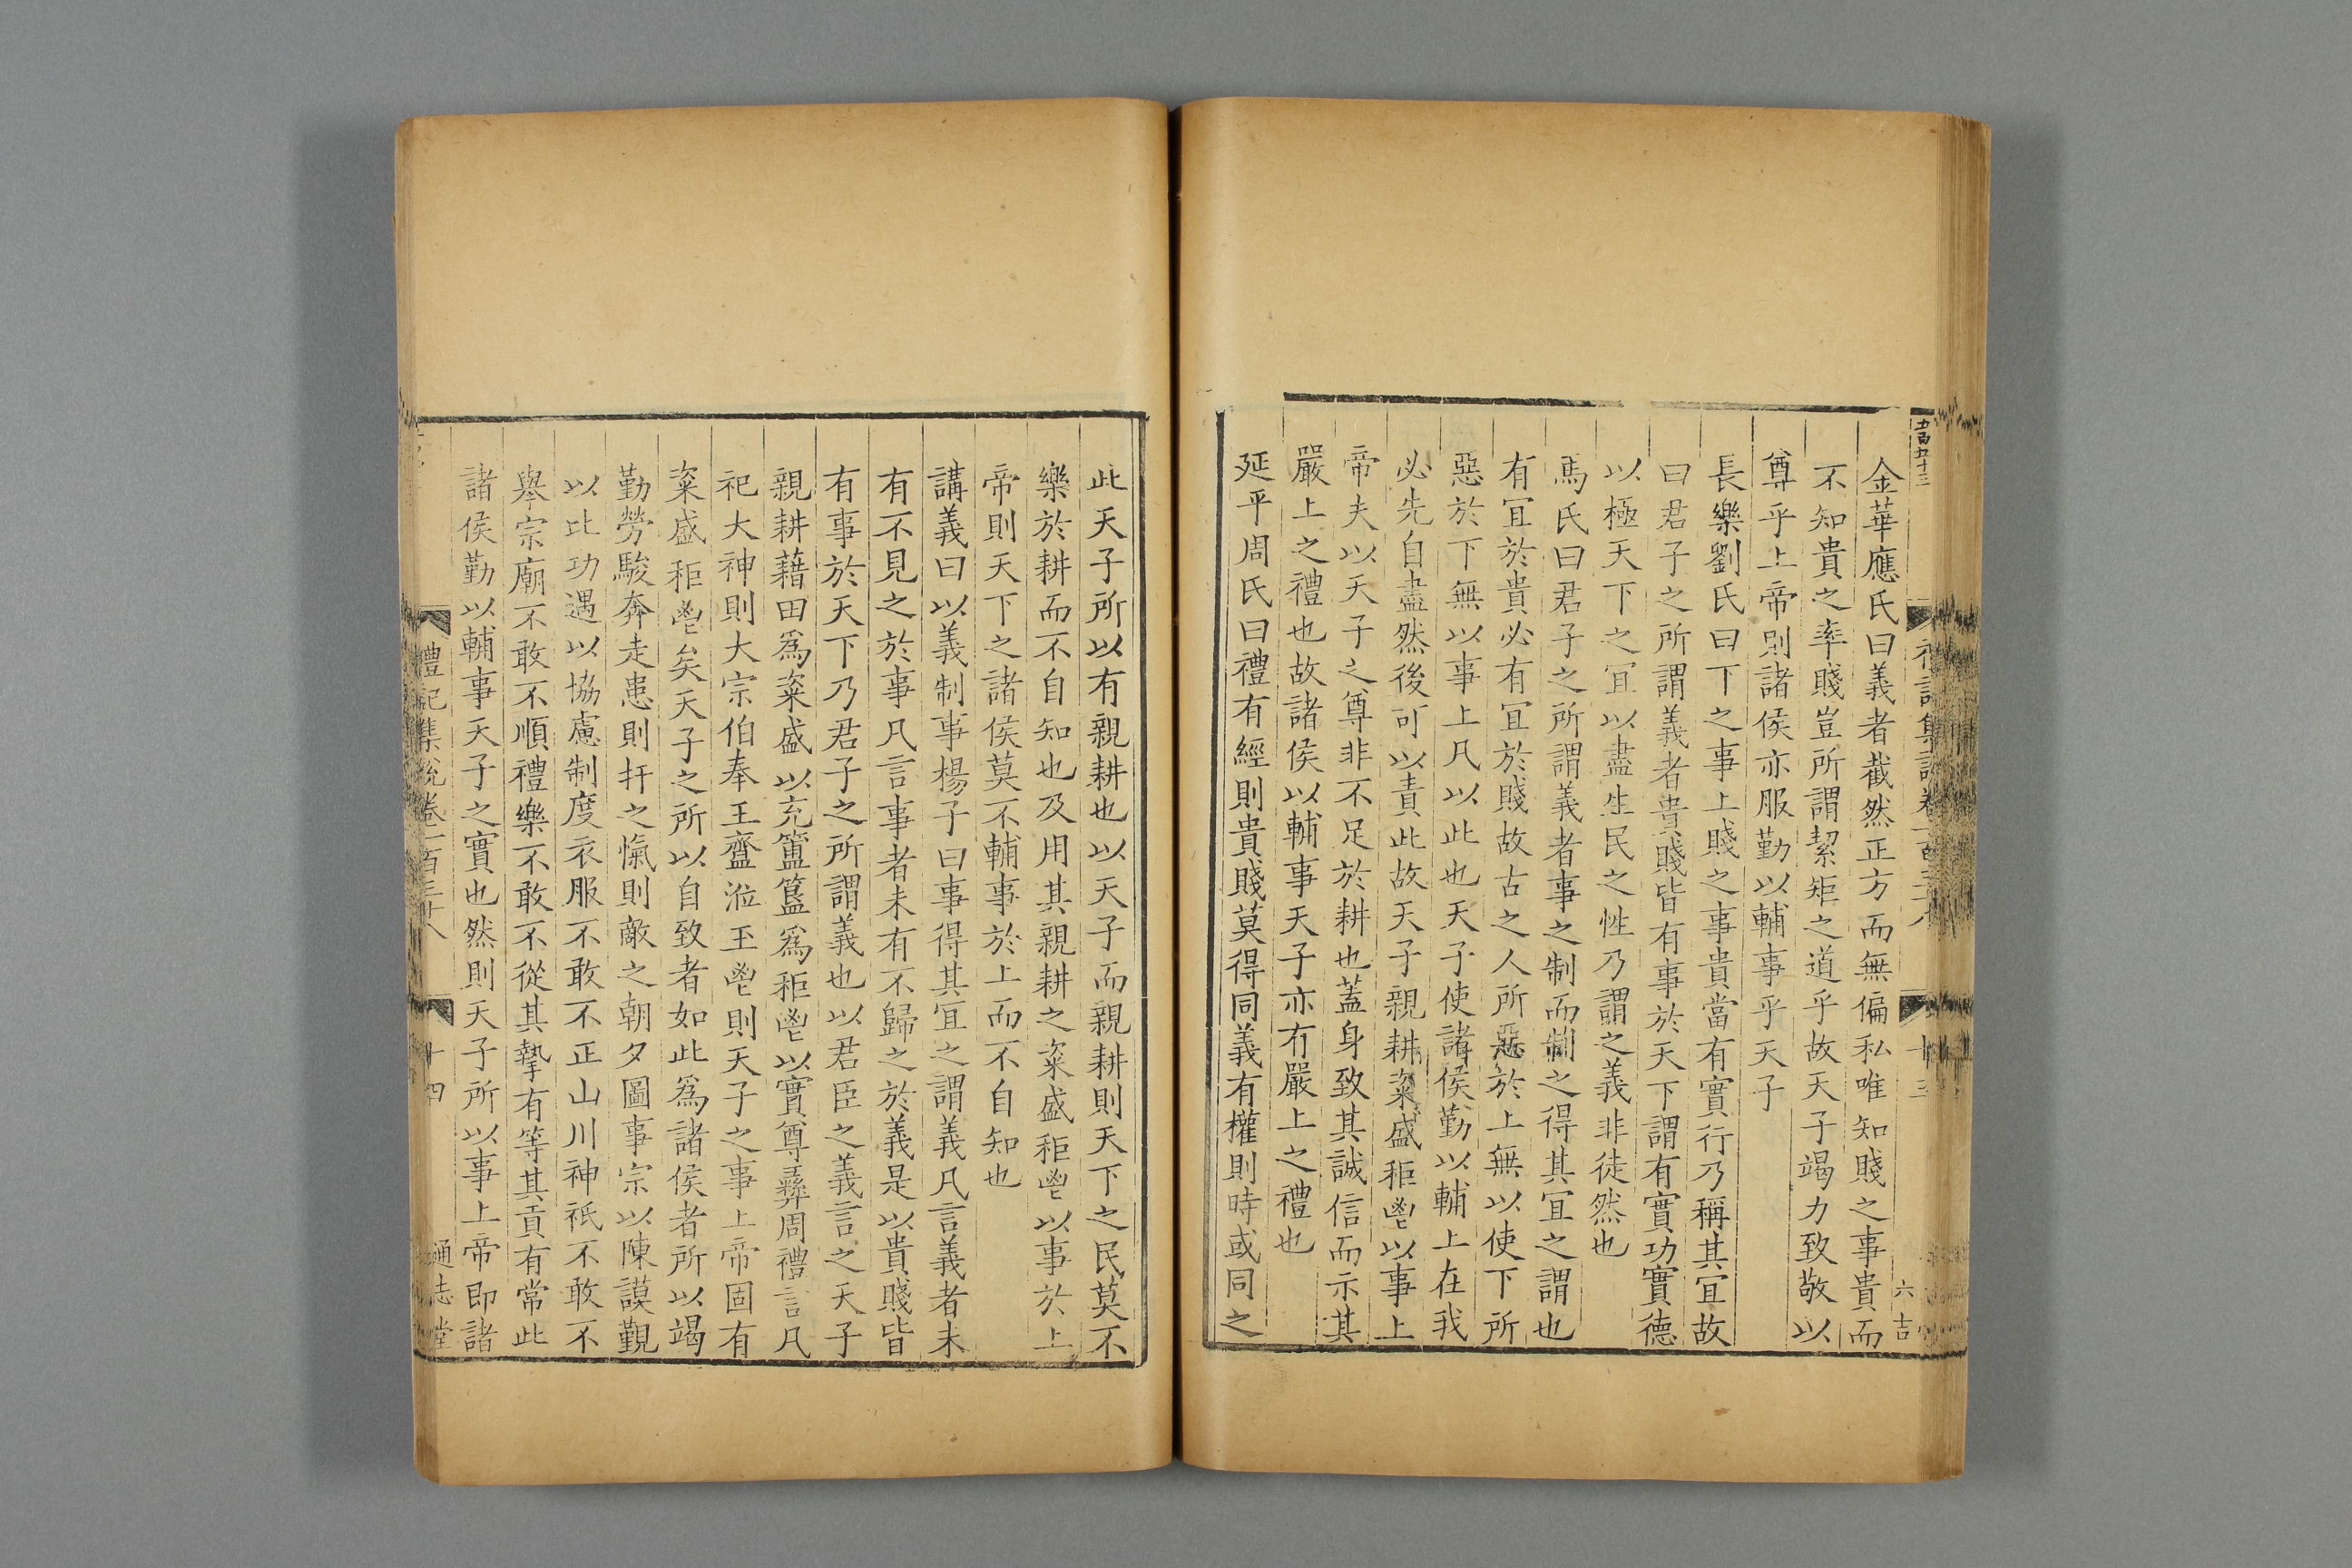 金華應氏曰義者截然正方而無偏私唯知賤之事貴而
不知貴之率賤豈所謂絜矩之道乎故天子竭力致敬以
尊乎上帝則諸侯亦服勤以輔事乎天子
長樂劉氏曰下之事上賤之事貴當有實行乃稱其宜故
曰君子之所謂義者貴賤皆有事於天下謂有實功實德
以極天下之宜以盡生民之性乃謂之義非徒然也
馬氏曰君子之所謂義者事之制而制之得其宜之謂也
有宜於貴必有宜於賤故古之人所惡於上無以使下所
惡於下無以事上凡以此也天子使諸侯勤以輔上在我
必先自盡然後可以責此故天子親耕粢盛秬鬯以事上
帝夫以天子之尊非不足於耕也蓋身致其誠信而示其
嚴上之禮也故諸侯以輔事天子亦有嚴上之禮也
延平周氏曰禮有經則貴賤莫得同義有權則時或同之
此天子所以有親耕也以天子而親耕則天下之民莫不
樂於耕而不自知也及用其親耕之粢盛秬鬯以事於上
帝則天下之諸侯莫不輔事於上而不自知也
講義曰以義制事楊子曰事得其宜之謂義凡言義者未
有不見之於事凡言事者未有不歸之於義是以貴賤皆
有事於天下乃君子之所謂義也以君臣之義言之天子
親耕藉田爲粢盛以充簠簋爲秬鬯以實尊彞周禮言凡
祀大神則大宗伯奉玉齍涖玉鬯則天子之事上帝固有
粢盛秬鬯矣天子之所以自致者如此爲諸侯者所以竭
勤勞駿奔走患則扞之愾則敵之朝夕圖事宗以陳謨覲
以比功遇以協慮制度衣服不敢不正山川神祇不敢不
舉宗廟不敢不順禮樂不敢不從其摯有等其貢有常此
諸侯勤以輔事天子之實也然則天子所以事上帝即諸
禮記集說卷一百三十八
十四
通志堂